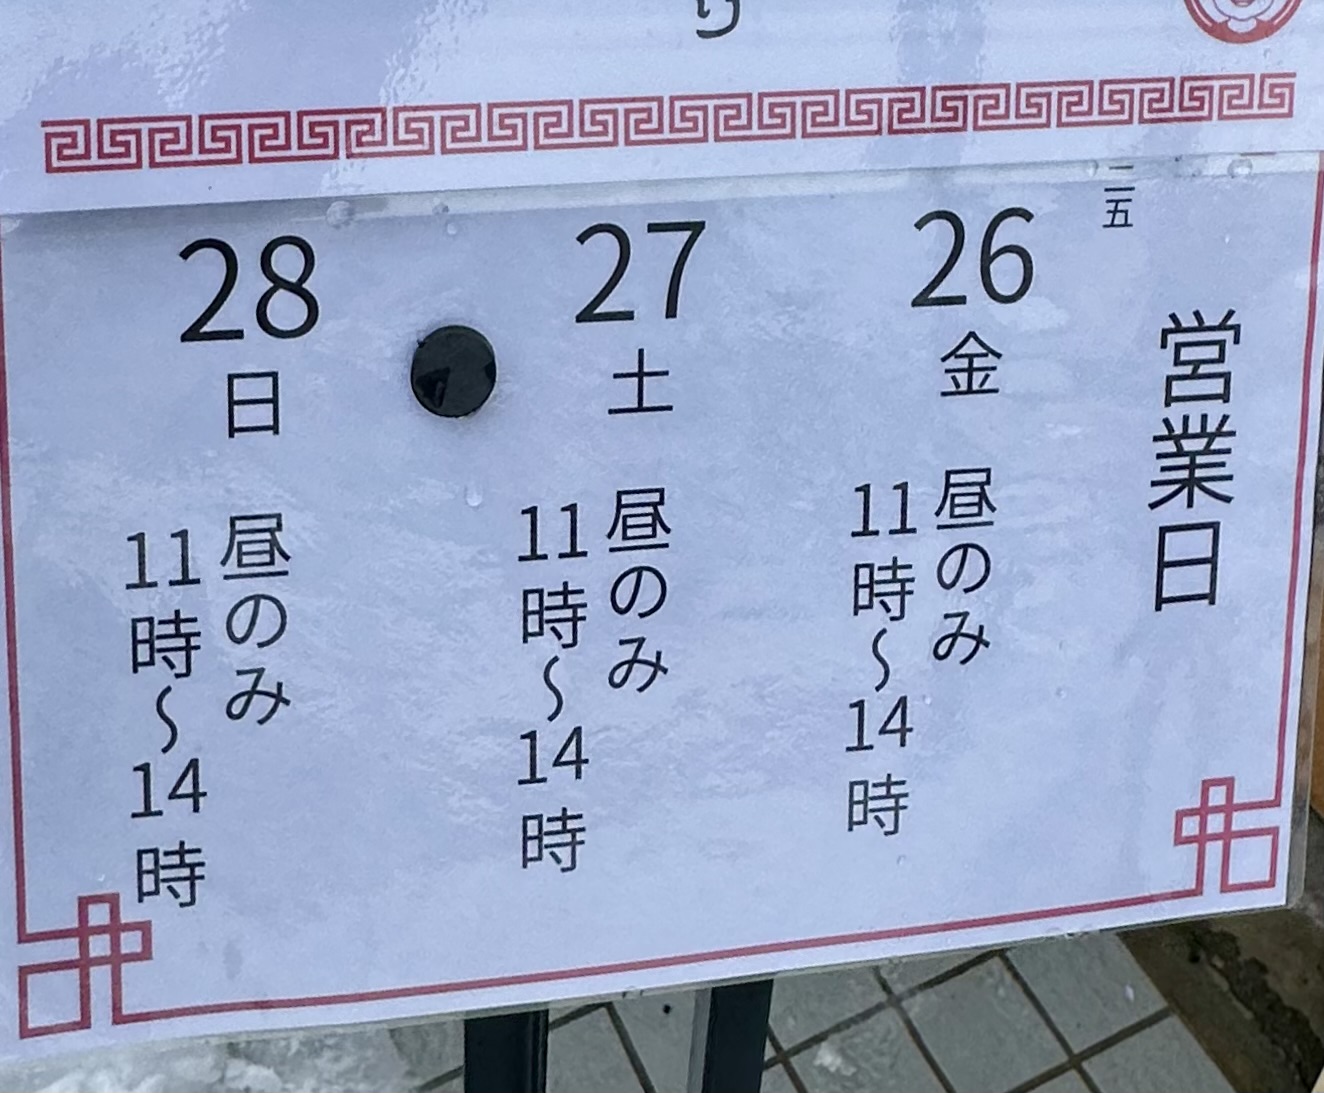 り
二五
営業日
26
金
昼のみ
11時〜14時
27
土
昼のみ
11時〜14時
28
日
昼のみ
11時〜14時